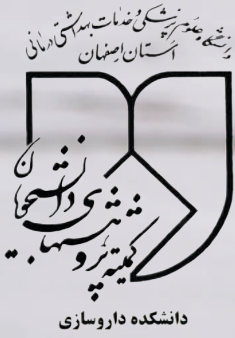 دانشگاه علوم پزشکی و خدمات بهداشتی درمانی
استان اصفهان
کمیته پژوهشهای دانشجویان
دانشکده داروسازی